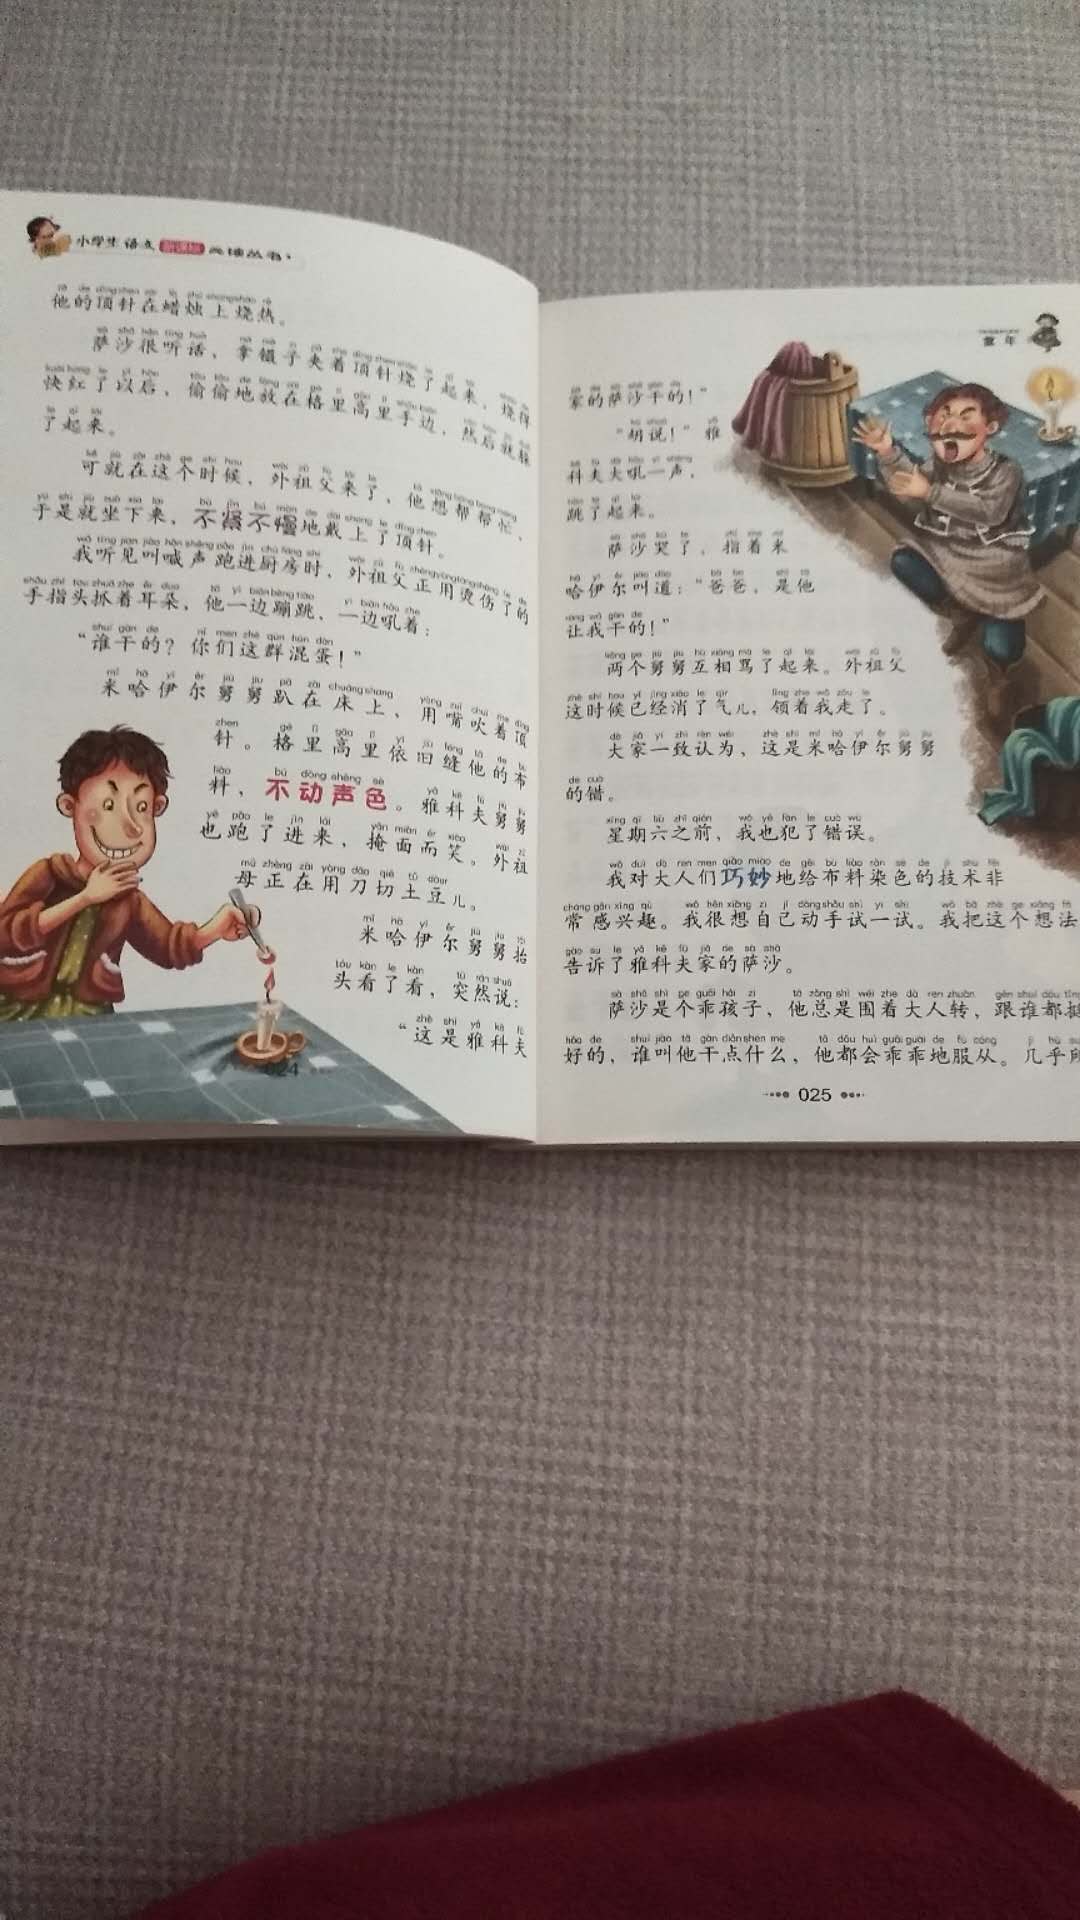 小学生语文新课标必读丛书
他的顶针在蜡烛上烧热。
萨沙很听话，拿镊子夹着顶针烧了起来，烧得
快红了以后，偷偷地放在格里高里手边，然后就躲
了起来。
可就在这个时候，外祖父来了，他想帮帮忙，
于是就坐下来，不紧不慢地戴上了顶针。
我听见叫喊声跑进厨房时，外祖父正用烫伤了的
手指头抓着耳朵，他一边蹦跳，一边吼着：
“谁干的？你们这群混蛋！”
米哈伊尔舅舅趴在床上，用嘴吹着顶
针。格里高里依旧缝他的布
料，不动声色。雅科夫舅舅
也跑了进来，掩面而笑。外祖
母正在用刀切土豆儿。
米哈伊尔舅舅抬
头看了看，突然说：
“这是雅科夫
024
童年
家的萨沙干的！”
“胡说！”雅
科夫大吼一声，
跳了起来。
萨沙哭了，指着米
哈伊尔叫道：“爸爸，是他
让我干的！”
两个舅舅互相骂了起来。外祖父
这时候已经消了气儿，领着我走了。
大家一致认为，这是米哈伊尔舅舅
的错。
星期六之前，我也犯了错误。
我对大人们巧妙地给布料染色的技术非
常感兴趣。我很想自己动手试一试。我把这个想法
告诉了雅科夫家的萨沙。
萨沙是个乖孩子，他总是围着大人转，跟谁都挺
好的，谁叫他干点什么，他都会乖乖地服从。几乎所
025